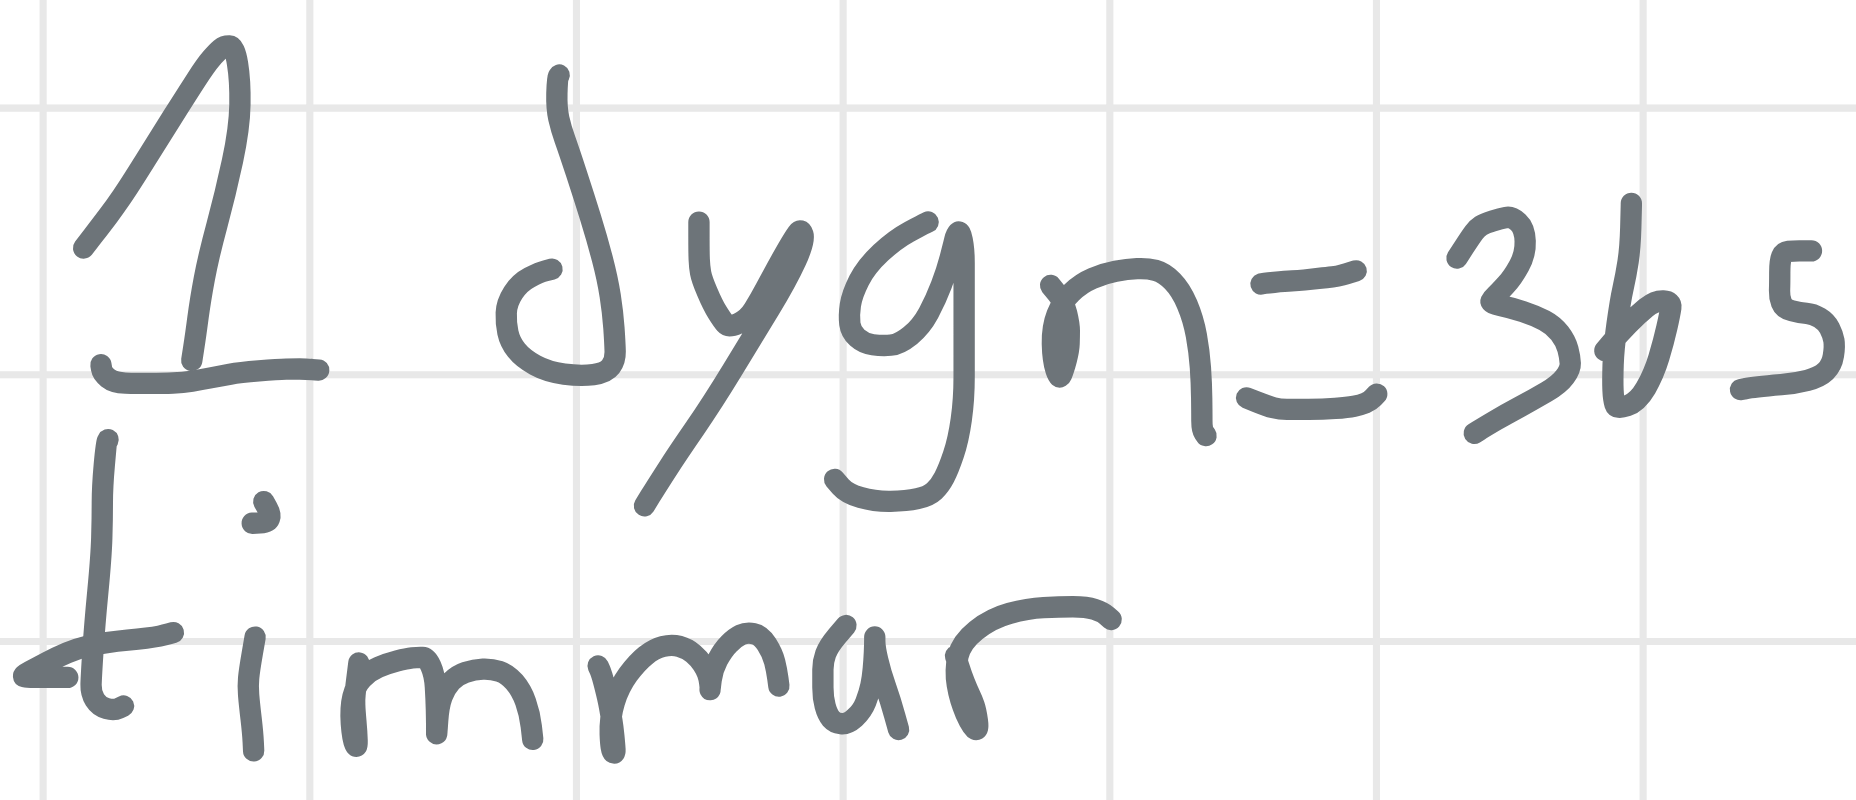 1 dygn=365
timmar